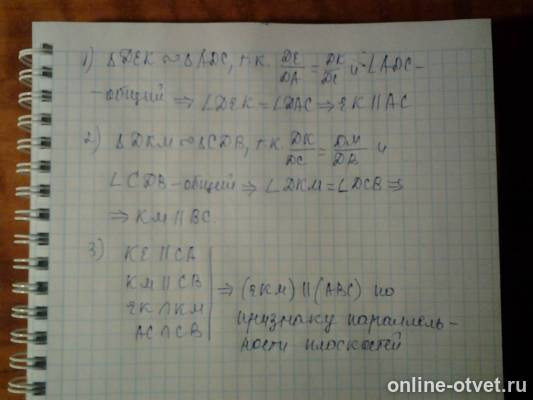 1) ΔDEK ∾ ΔADC, т.к. DE/DA = DK/DC и ∠ADC –
– общий ⇒ ∠DEK = ∠DAC ⇒ EK || AC
2) ΔDKM ∾ ΔCDB, т.к. DK/DC = DM/DB и
∠CDB – общий ⇒ ∠DKM = ∠DCB ⇒
⇒ KM || BC
3) KE || CA
KM || CB
EK ∩ KM
AC ∩ CB
⇒ (EKM) || (ABC) по
признаку параллель-
ности плоскостей
online-otvet.ru